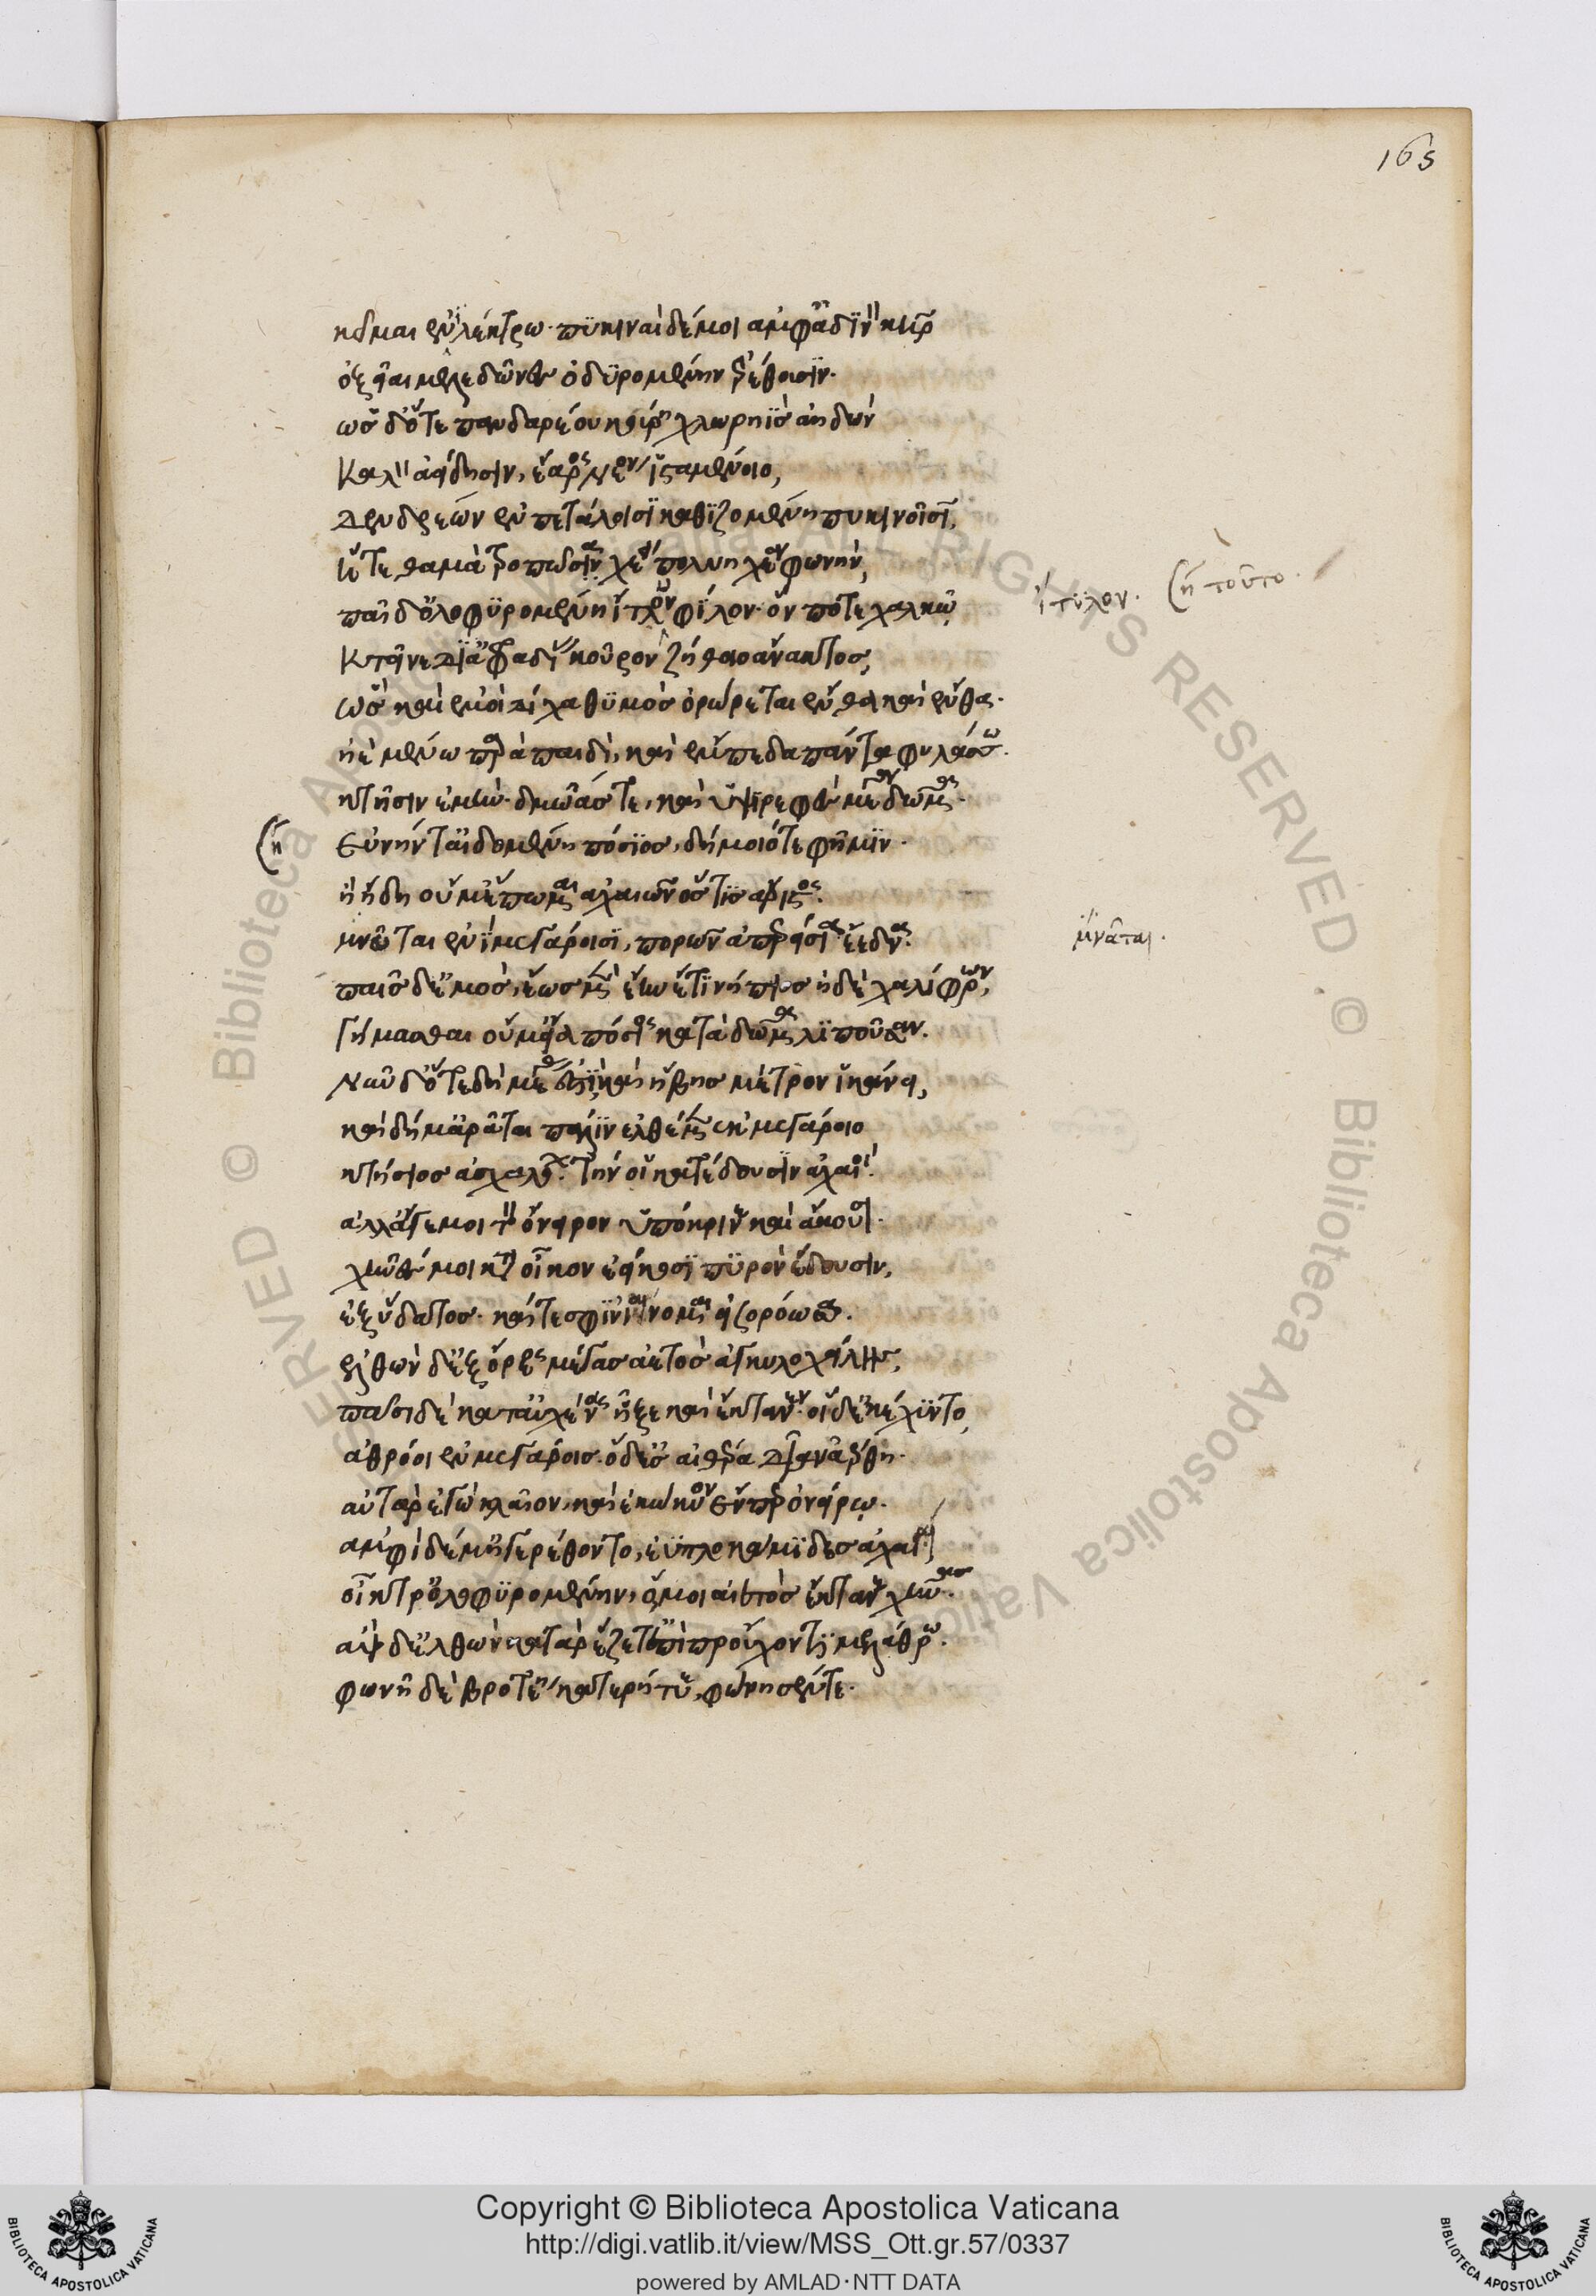 165
κεῖμαι ἐνὶ λέκτρω· πυκιναὶ δέ μοι ἀμφ' ἀδινὸν κῆρ
ὀξεῖαι μελεδῶναι ὀδυρομένην ἐρέθουσιν·
ὡς δ' ὅτε πανδαρέου κούρη χλωρηῒς ἀηδὼν
καλὸν ἀείδησιν, ἔαρος νέον ἱσταμένοιο,
δενδρέων ἐν πετάλοισι καθιζομένη πυκινοῖσι,
ἥτε θαμὰ τροπῶσα χέει πολυηχέα φωνὴν,
παῖδ' ὀλοφυρομένη ἴτυλον φίλον· ὅν ποτε χαλκῷ
ἴτυλον· ἢ τοῦτο·
κτεῖνε δι' ἀφραδίας κοῦρον ζήθοιο ἄνακτος,
ὣς καὶ ἐμοὶ δίχα θυμὸς ὀρώρεται ἔνθα καὶ ἔνθα·
ἠὲ μένω παρὰ παιδὶ, καὶ ἔμπεδα πάντα φυλάσσω·
κτῆσιν ἐμὴν· δμωάς τε, καὶ ὑψιρεφὲς μέγα δῶμα·
ἢ
εὐνήν τ' αἰδομένη πόσιος, δήμοιό τε φῆμιν·
ἢ ἤδη ἅμ' ἕπωμαι ἀχαιῶν ὅστις ἄριστος·
μνᾶται ἐνὶ μεγάροισι, πορὼν ἀπερείσια ἕεδνα·
μνᾶται·
παῖς δ' ἐμὸς, ἕως μὲν ἔην ἔτι νήπιος ἠδὲ χαλίφρων,
γήμασθαι οὔ μ' εἴα πόσιος κατὰ δῶμα λιποῦσαν·
νῦν δ' ὅτε δὴ μέγας ἐστὶ καὶ ἥβης μέτρον ἱκάνει,
καὶ δή μ' ἀρᾶται πάλιν ἐλθέμεν ἐκ μεγάροιο
κτήσιος ἀσχαλόων· τήν οἱ κατέδουσιν ἀχαιοί·
ἀλλ' ἄγε μοι τὸν ὄνειρον ὑπόκριναι καὶ ἄκουσον·
χῆνές μοι κατὰ οἶκον ἐείκοσι πυρὸν ἔδουσιν,
ἐξ ὕδατος· καί τέ σφιν ἰαίνομαι εἰσορόωσα·
ἐλθὼν δ' ἐξ ὄρεος μέγας αἰετὸς ἀγκυλοχείλης,
πᾶσι δὲ κατ' αὐχένας ἧξε καὶ ἔκτανεν· οἱ δ' ἐκέχυντο,
ἀθρόοι ἐν μεγάροις· ὁ δ' ἐς αἰθέρα δῖαν ἀέρθη·
αὐτὰρ ἐγὼ κλαῖον, καὶ ἐκώκυον ἔν περ ὀνείρῳ·
ἀμφὶ δέ μ' ἠγερέθοντο, ἐϋπλοκαμῖδες ἀχαιαὶ
οἴκτρ' ὀλοφυρομένην, ὅ μοι αἰετὸς ἔκτανε χῆνας·
ἂψ δ' ἐλθὼν κατ' ἄρ' ἕζετ' ἐπὶ προὔχοντι μελάθρω·
φωνῇ δὲ βροτέη κατερήτυε, φώνησέν τε·
Copyright © Biblioteca Apostolica Vaticana
http://digi.vatlib.it/view/MSS_Ott.gr.57/0337
powered by AMLAD·NTT DATA
BIBLIOTECA APOSTOLICA VATICANA
BIBLIOTECA APOSTOLICA VATICANA